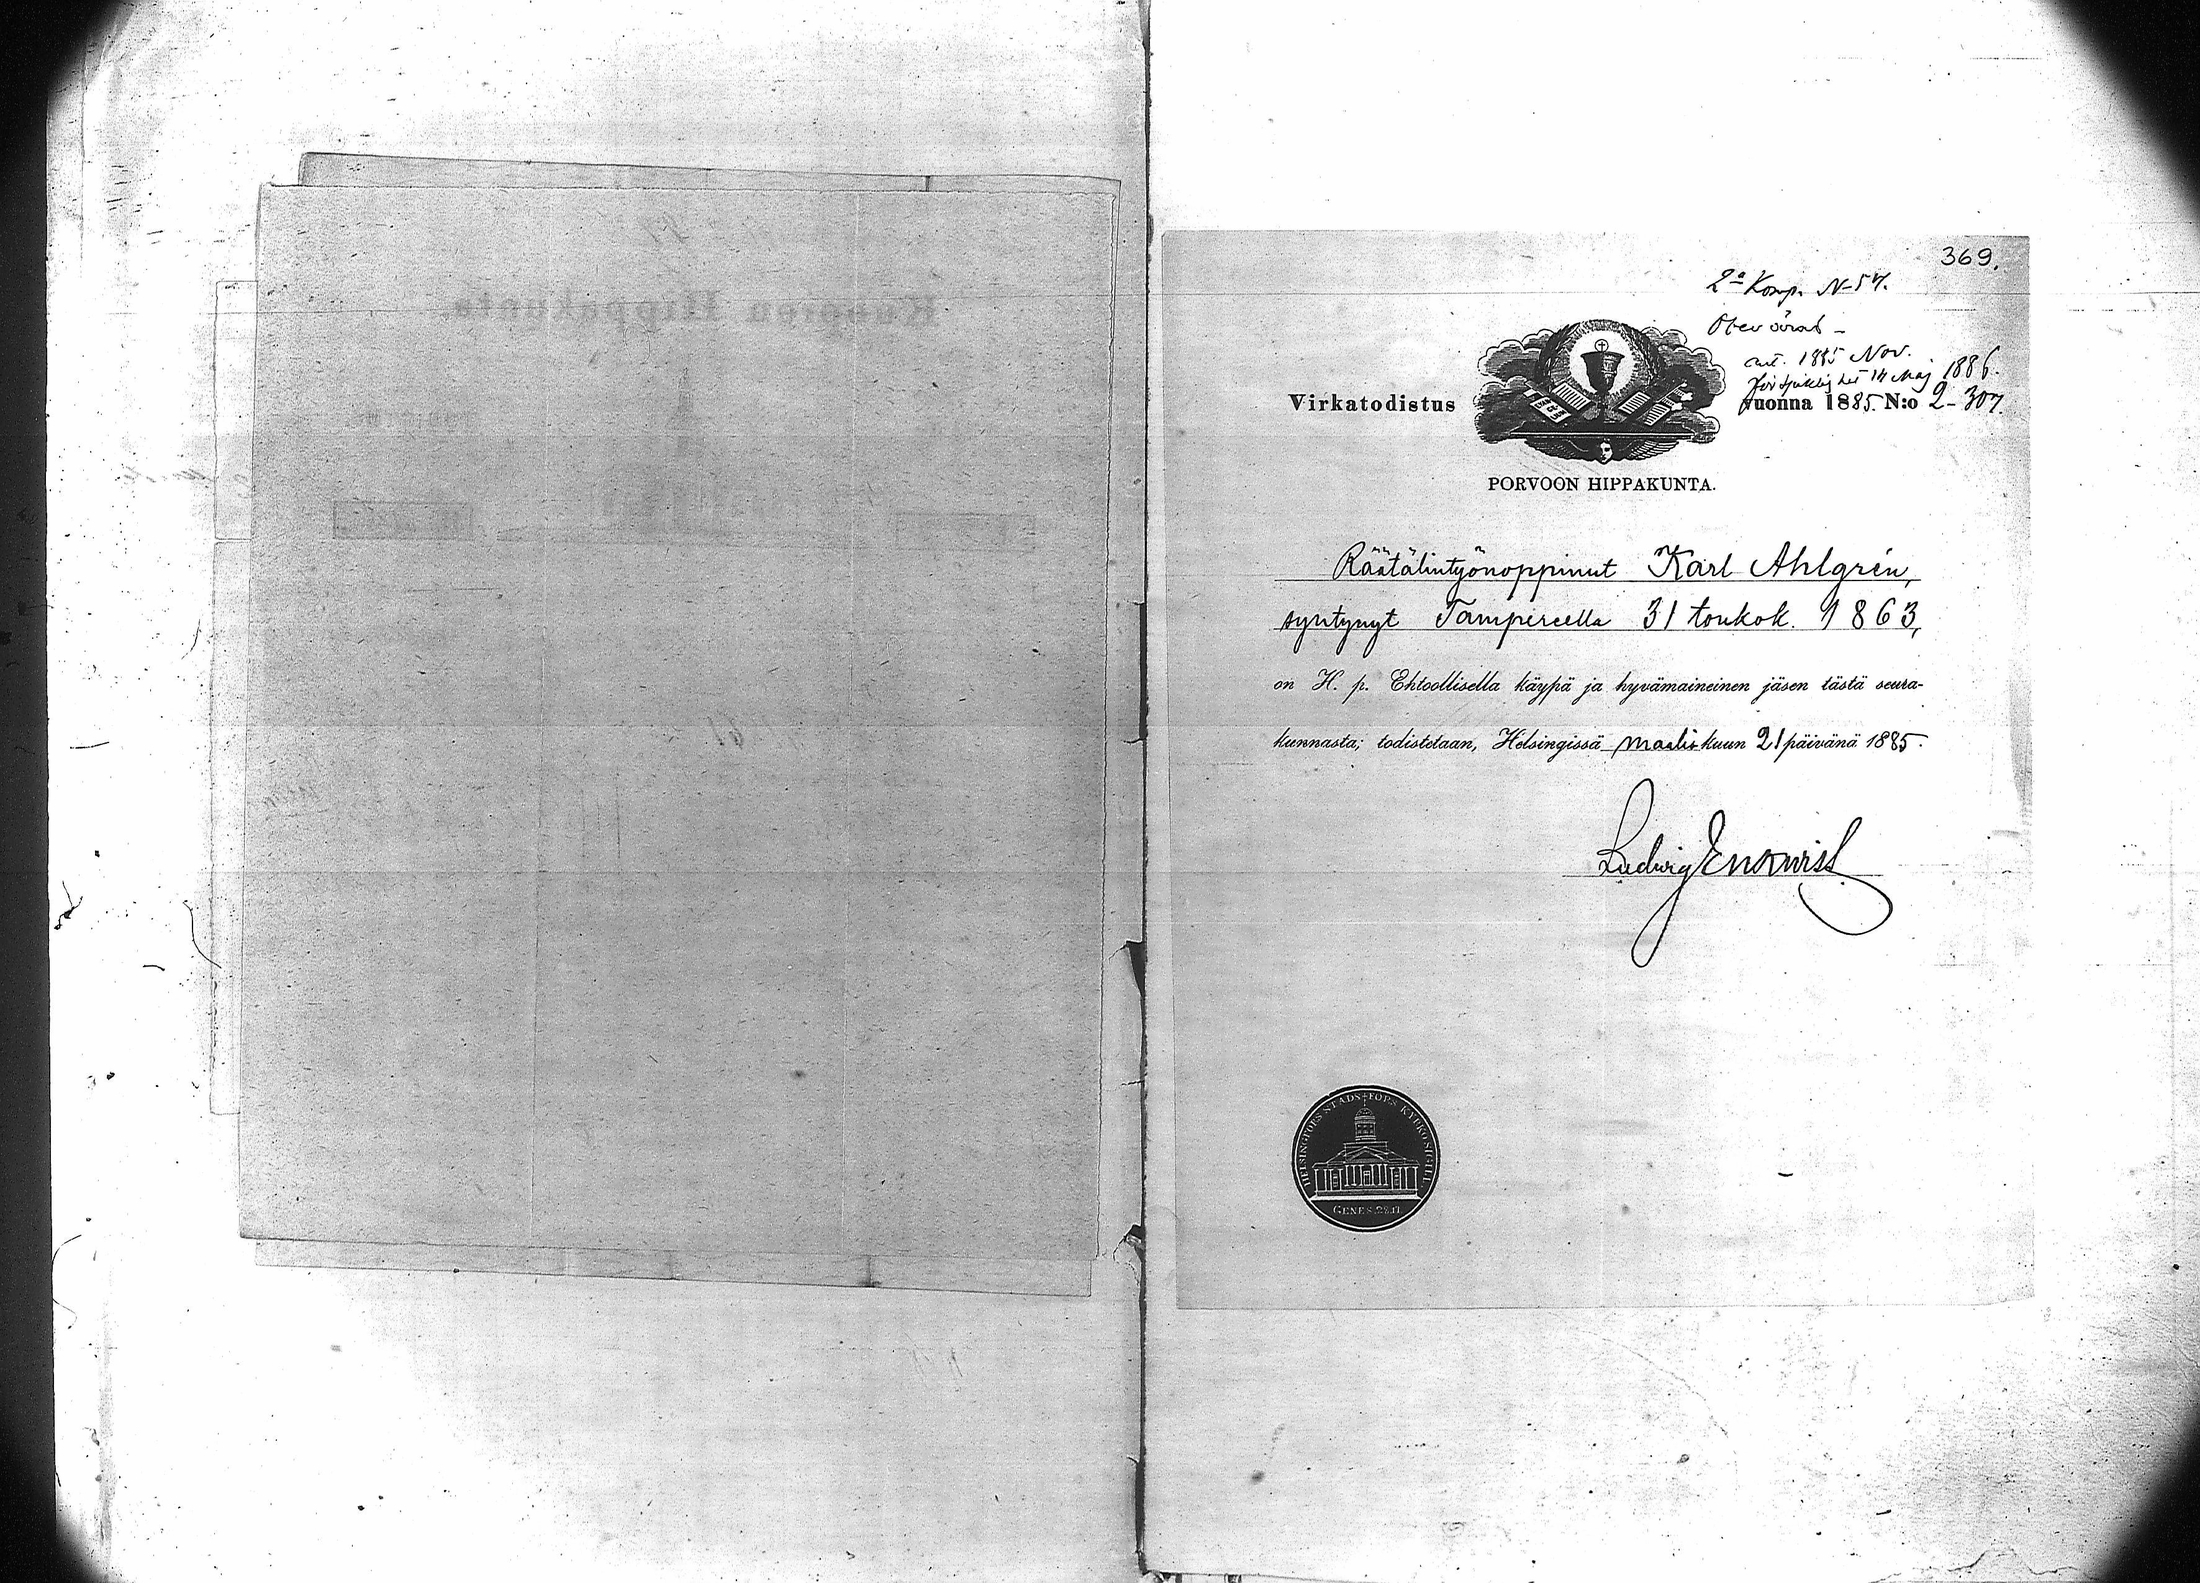 Kuopion Hippakunta.
369.
2a Komp. N-57.
ant. 1885 Nov.
Maj 1886.
Virkatodistus vuonna 1885. N:o 2-307.
PORVOON HIPPAKUNTA.
Räätälintyönoppinut Karl Ahlgrén,
syntynyt Tampereella 31 toukok. 1863,
on H. p. Ehtoollisella käypä ja hyvämaineinen jäsen tästä seura-
kunnasta; todistetaan, Helsingissä maaliskuun 21 päivänä 1885.
Ludwig Enqvist
HELSINGFORS STADS FÖRS. KYRKO SIGILL.
GENES. 28.17